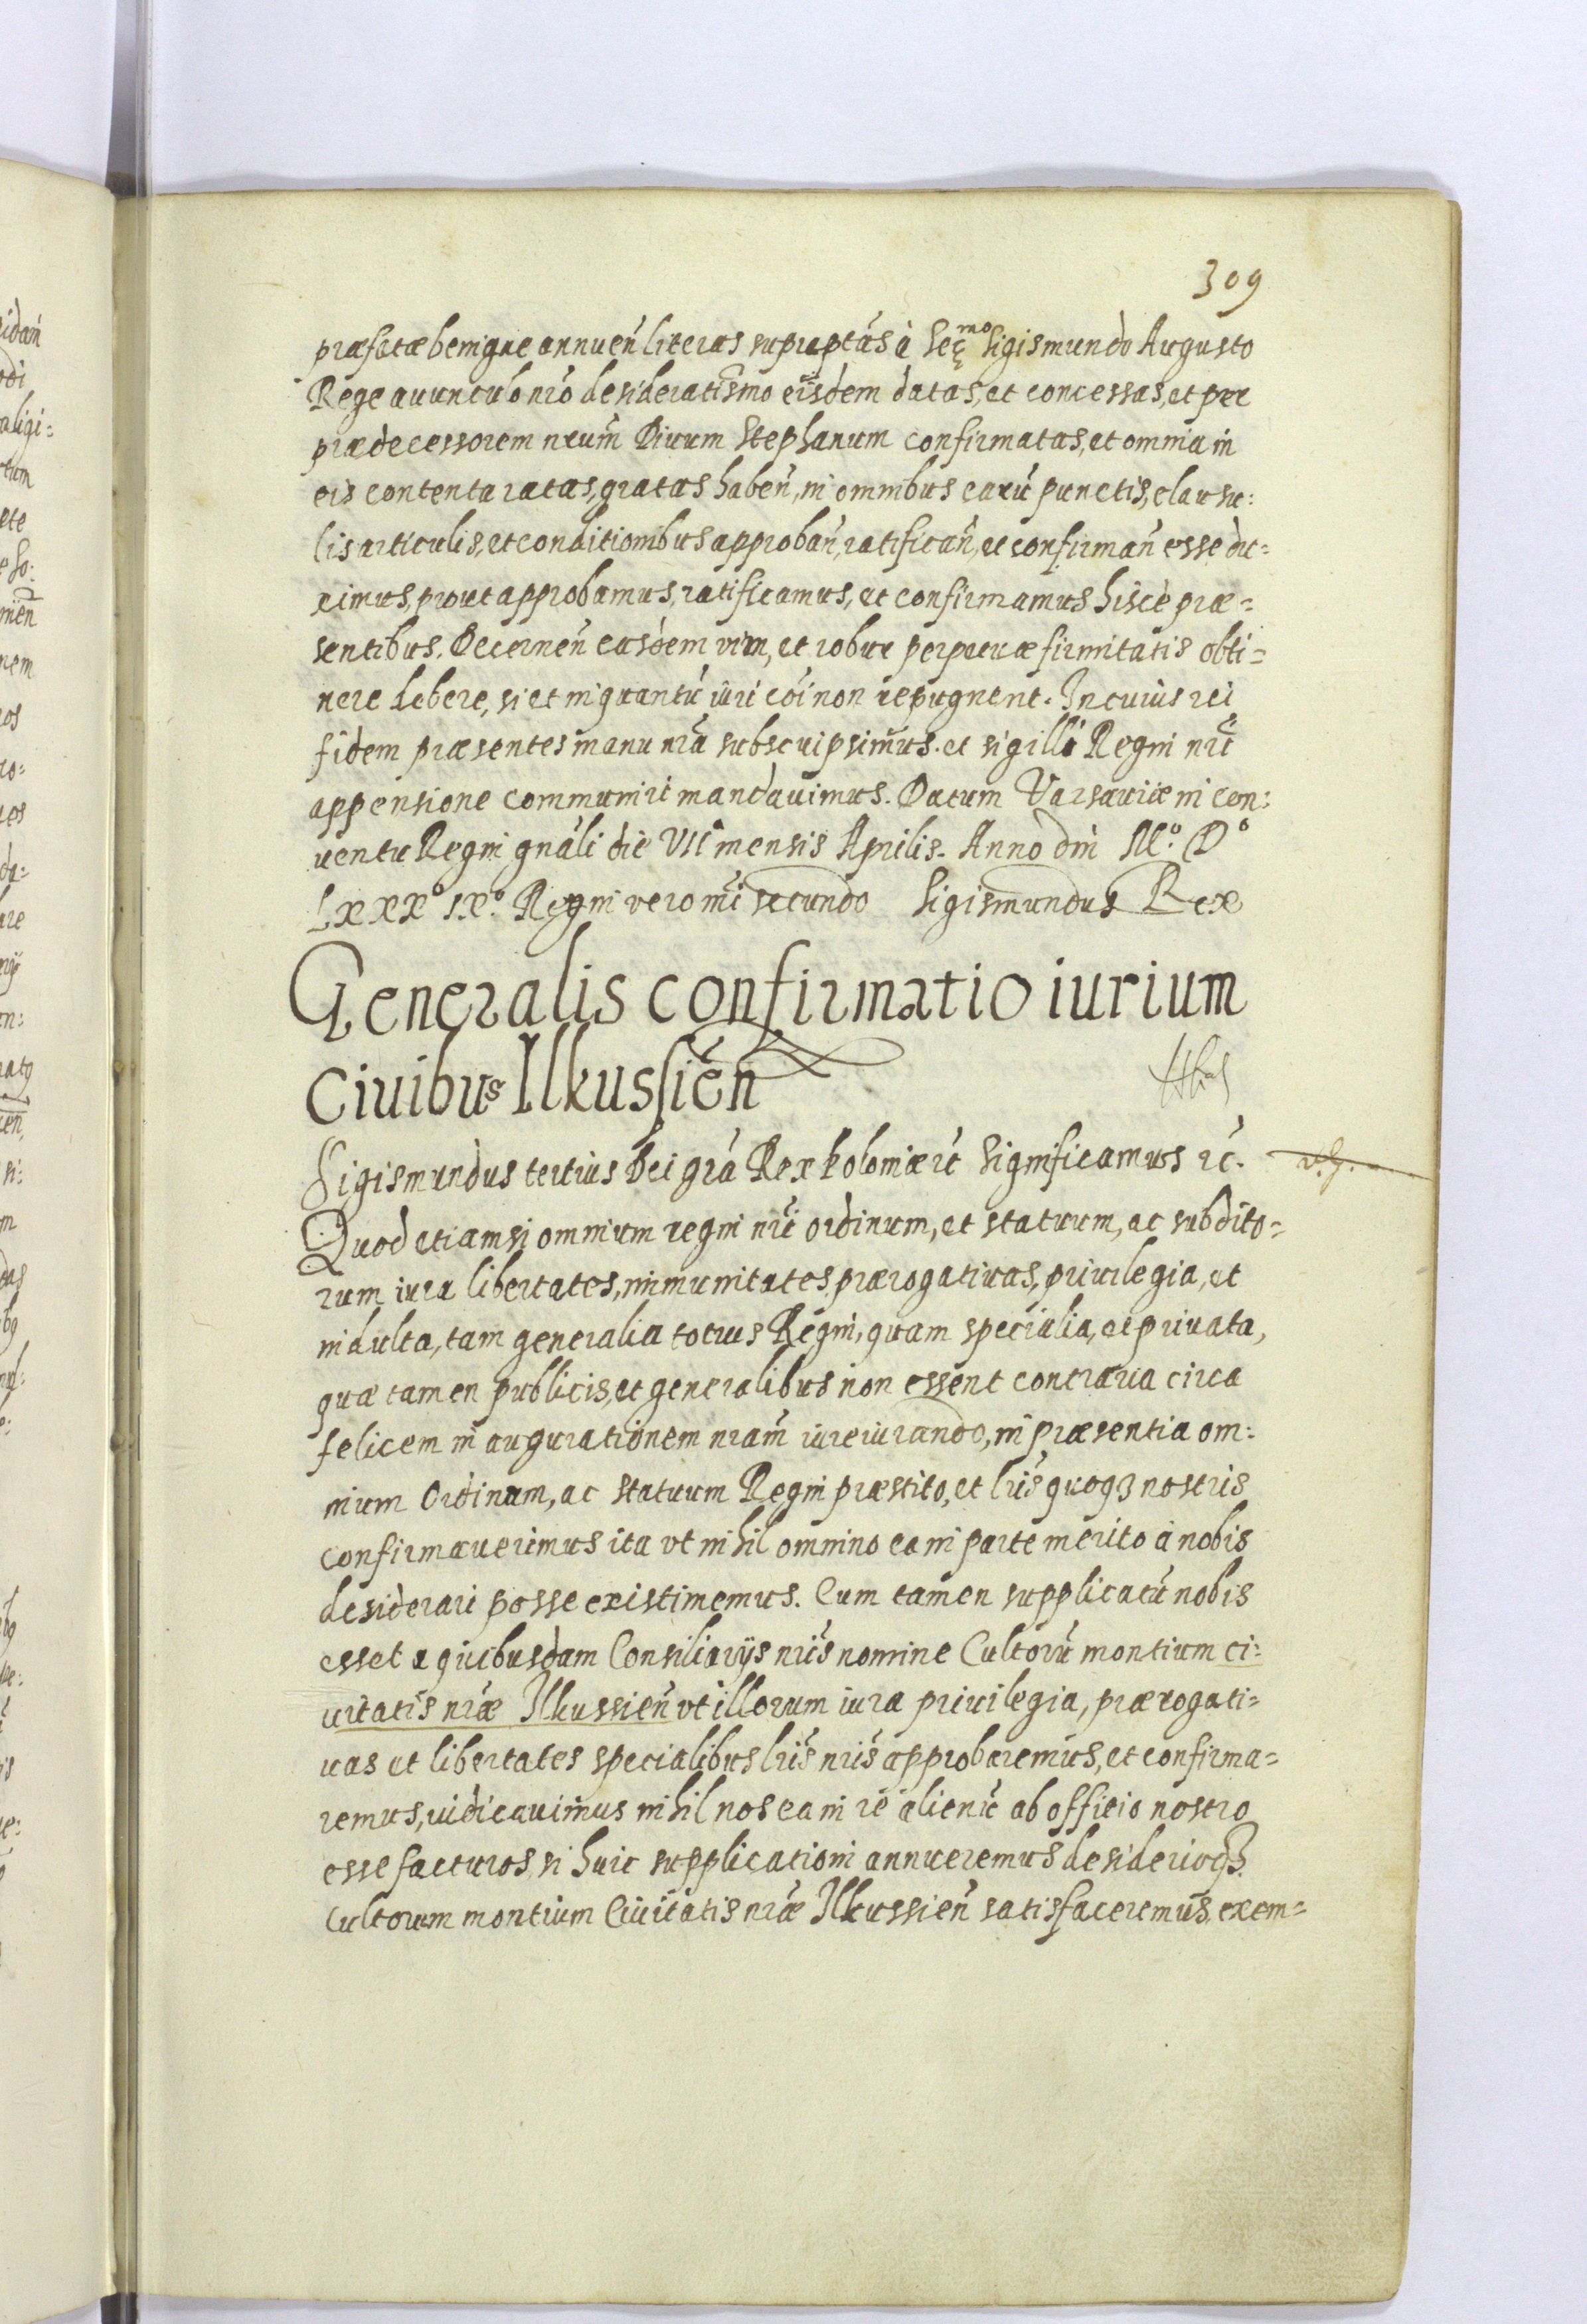 309
præfatæ benigne annueñ literas supraptas à Seꝶ̨mo Sigismundo Augusto
Rege auunculo nro desideratissmo eisdem datas, et concessas, et per
prædecessorem nrum Diuum Stephanum confirmatas, et omnia in
eis contenta ratas, gratas habeñ, in omnibus earū punctis, clausu:
lis articulis, et conditionibus approbañ, ratificañ, et confirmañ esse du=
ximus, prout approbamus, ratificamus, et confirmamus hisce præ=
sentibus. Decerneñ easdem vim, et robur perpetuæ firmitatis obti=
nere debere, si et in quantū iuri cōi non repugnent. In cuius rei
fidem præsentes manu nra subscripsimus. et sigilli Regni nri
appensione communiri mandauimus. Datum Varsauiæ in con:
uentu Regni gnali die VII mensis Aprilis. Anno dni Mo. Do
Lxxxo IXo. Regni vero nri secundo Sigismundus Rex
Generalis confirmatio iurium
Ciuibus Ilkussień
Sigismundus tertius Dei gra Rex Poloniæ rc̃ Significamus rc̃.
Quod etiamsi omnium regni nri ordinum, et statuum, ac subdito=
rum iura libertates, immunitates, prærogatiuas, priuilegia, et
indulta, tam generalia totius Regni, quam specialia, et priuata,
quæ tamen publicis, et generalibus non essent contraria circa
felicem inaugurationem nram iureiurando, in præsentia om:
nium Ordinum, ac statuum Regni præstito, et lris quoqꝫ nostris
confirmauerimus ita vt nihil omnino ea in parte merito à nobis
desiderari posse existimemus. Cum tamen supplicatū nobis
esset a quibusdam Consiliarijs nris nomine Cultorū montium ci:
uitatis nræ Ilkussień vt illorum iura priuilegia, prærogati=
uas et libertates specialibus lris nris approbaremus, et confirma=
remus, iudicauimus nihil nos ea in re alienū ab officio nostro
esse facturos, si huic supplicationi annueremus desiderioqꝫ
Cultorum montium Ciuitatis nræ Ilkussień satisfaceremus, exem=